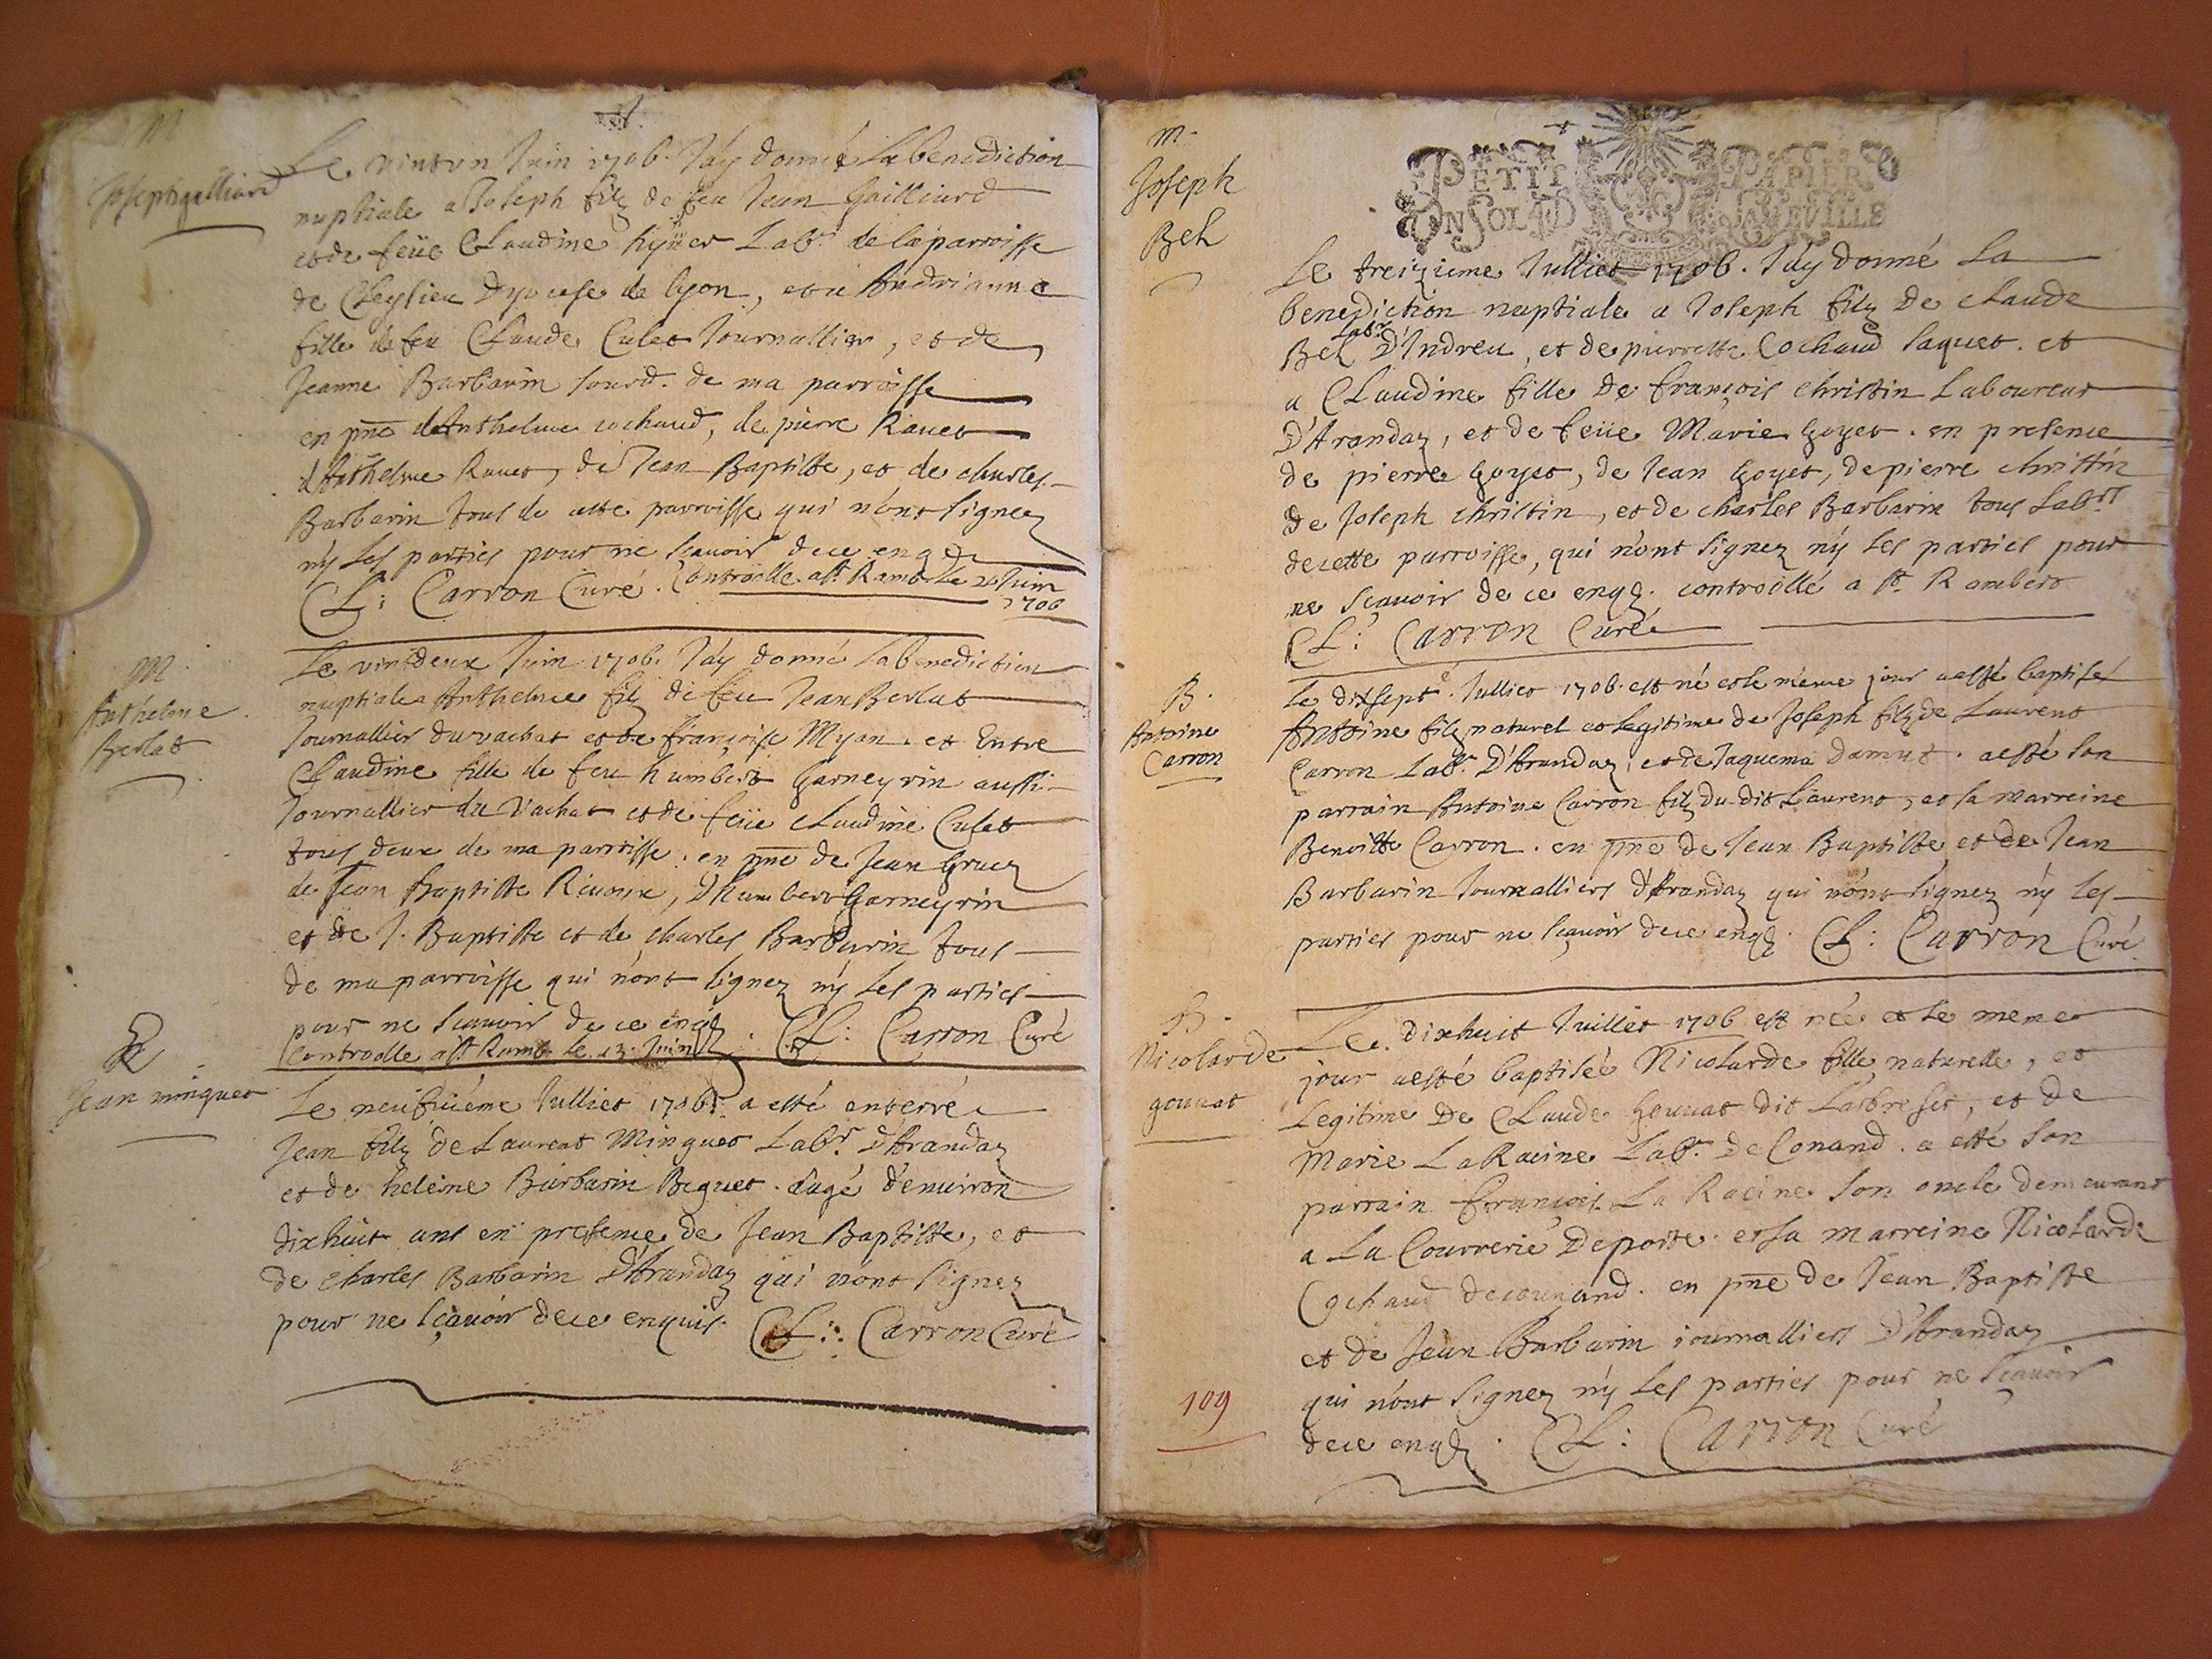 M
Joseph galliard
Le vintvn Juin 1706. J'ay donné La benediction
nuptiale a Joseph filz de feu Jean Gailliard
et de feüe Claudine Labr. de la parroisse
de Cleysieu Dyocese de lyon, et a Andrianne
fille de feu Claude Culet Journallier, et de
Jeanne Barbarin Sourd. de ma parroisse
en pñce d'Anthelme cochaud, de pierre Ravet
d'Anthelme Ravet, de Jean Baptiste, et de charles
Barbarin tous de cette parroisse qui n'ont signez
n'y Les parties pour ne scavoir de ce enqz
CL: Carron Curé. Controolle a St. Ramb. Le Juin
1706
M.
Anthelme
Berlat
Le vint deux Juin 1706. J'ay donné La benediction
nuptiale a Anthelme filz de feu Jean Berlat
Journallier du vachat et de françoise Myan. et Entre
Claudine fille de feu humbert Garneyrin aussi
Journallier du Vachat et de feüe claudine Culet
tous deux de ma parroisse. en pñce de Jean Gruez
de Jean Baptiste Rivoux, d'humbert Garneyrin
et de J. Baptiste et de charles Barbarin tous
de ma parroisse qui n'ont signez n'y Les parties
pour ne scavoir de ce enqz. CL: Carron Curé
Controolle a St Ramb. le Juin
Jean minguet
Le neufuiéme Julliet 1706. a esté enterré
Jean filz de Laurent Minguet Labr. D'Arandaz
et de heleine Barbarin Beguet. aagé d'enuiron
dixhuit ans en presence de Jean Baptiste, et
de charles Barbarin D'Arandaz qui n'ont signez
pour ne scavoir de ce enquis. CL: Carron Curé
m.
Joseph
Bel
PETIT PAPIER
UN SOL 4 D LA FEVILLE
Le treizieme Julliet 1706. J'ay donné La
benediction nuptiale a Joseph filz de claude
Bel Labr. D'Indreu, et de pierrette Cochaud Jaquet. et
a Claudine fille de françois christin Laboureur
D'Arandaz, et de feüe Marie Goyet. en presence
de pierre Goyet, de Jean Goyet, de pierre christin
de Joseph christin, et de charles Barbarin tous Labrs
de cette parroisse, qui n'ont signez n'y Les parties pour
ne scavoir de ce enqz. controollé a St. Rambert
CL: Carron Curé
B.
Antoine
Carron
Le dixsepte. Julliet 1706. est né et le méme jour a esté baptisé
Antoine filz naturel et Legitime de Joseph filz de Laurent
Carron Labr. D'Arandaz, et de Jaquema Damut. a esté son
parrain Antoine Carron filz du dit Laurent, et sa marreine
Benoitte Carron. en pñce de Jean Baptiste et de Jean
Barbarin Journalliers d'Arandaz qui n'ont signez n'y les
parties pour ne scavoir de ce enqz. CL: Carron Curé
B.
Nicolarde
gouuat
Le dixhuit Juillet 1706 est née et le meme
jour a esté baptisée Nicolarde fille naturelle, et
Legitime De Claude Gouuat dit Labresset, et de
Marie La Racine Labr. De Conand. a esté son
parrain françois La Racine son oncle demeurant
a La Courrerie De porte. et sa marreine Nicolarde
Cochaud de counand. en pñce de Jean Baptiste
et de Jean Barbarin journalliers D'Arandaz
qui n'ont signez n'y Les parties pour ne scavoir
de ce enqz. CL: Carron Curé
109